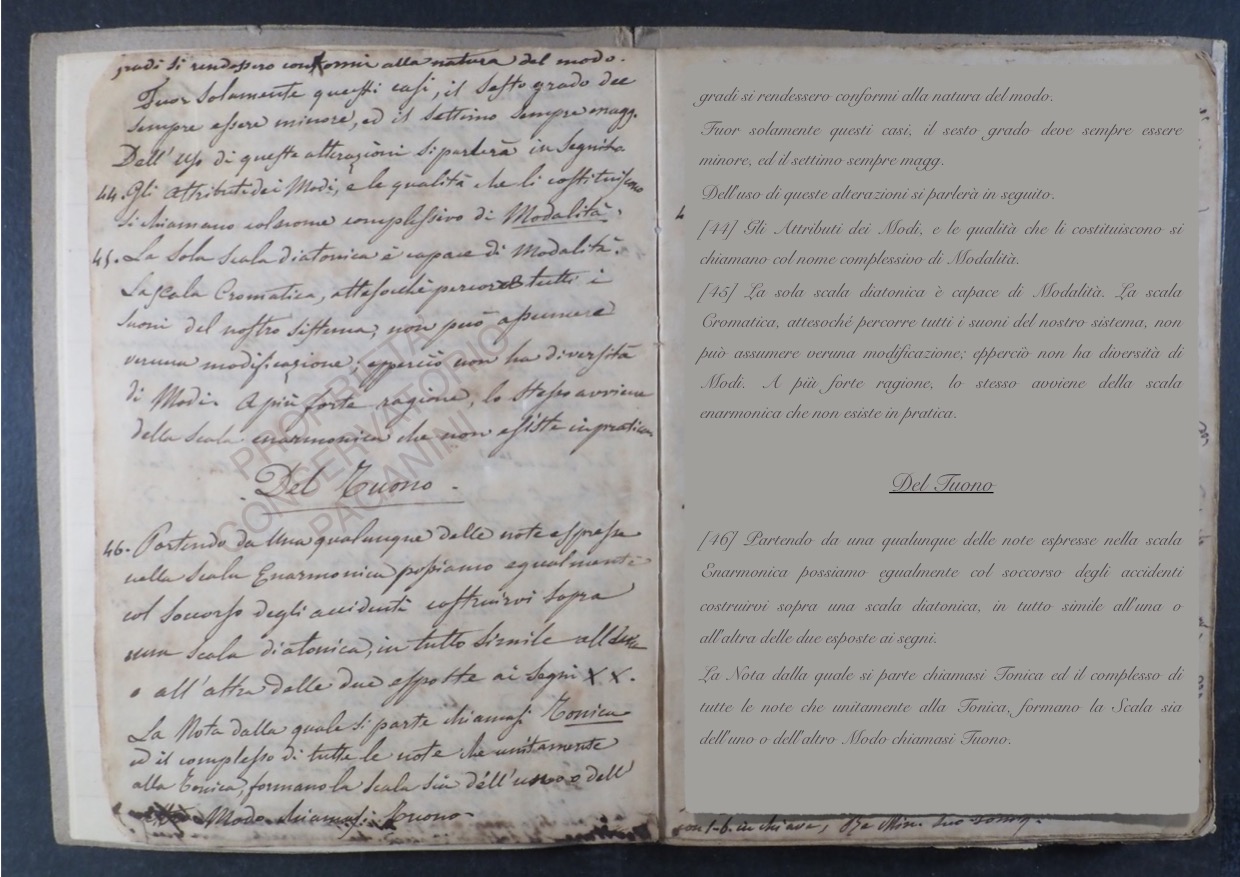 gradi si rendessero conformi alla natura del modo.
Fuor solamente questi casi, il sesto grado dee
sempre essere minore, ed il settimo sempre magg.
Dell'uso di queste alterazioni si parlerà in seguito
44. Gli Attributi dei Modi, e le qualità che li costituiscono
si chiamano col nome complessivo di Modalità.
45. La sola scala diatonica è capace di Modalità.
La scala Cromatica, attesochè percorre tutti i
suoni del nostro sistema, non può assumere
veruna modificazione; epperciò non ha diversità
di Modi. A più forte ragione, lo stesso avviene
della scala enarmonica che non esiste in pratica.
Del Tuono.
46. Partendo da una qualunque delle note espresse
nella scala Enarmonica possiamo egualmente
col soccorso degli accidenti costruirvi sopra
una scala diatonica, in tutto simile all'una
o all'altra delle due esposte ai segni X X.
La Nota dalla quale si parte chiamasi Tonica
ed il complesso di tutte le note che unitamente
alla Tonica, formano la Scala sia dell'uno o dell'
Modo chiamasi Tuono.
PROPRIETÀ
CONSERVATORIO
PAGANINI
gradi si rendessero conformi alla natura del modo.
Fuor solamente questi casi, il sesto grado deve sempre essere
minore, ed il settimo sempre magg.
Dell'uso di queste alterazioni si parlerà in seguito.
[44] Gli Attributi dei Modi, e le qualità che li costituiscono si
chiamano col nome complessivo di Modalità.
[45] La sola scala diatonica è capace di Modalità. La scala
Cromatica, attesoché percorre tutti i suoni del nostro sistema, non
può assumere veruna modificazione; epperciò non ha diversità di
Modi. A più forte ragione, lo stesso avviene della scala
enarmonica che non esiste in pratica.
Del Tuono
[46] Partendo da una qualunque delle note espresse nella scala
Enarmonica possiamo egualmente col soccorso degli accidenti
costruirvi sopra una scala diatonica, in tutto simile all'una o
all'altra delle due esposte ai segni.
La Nota dalla quale si parte chiamasi Tonica ed il complesso di
tutte le note che unitamente alla Tonica, formano la Scala sia
dell'uno o dell'altro Modo chiamasi Tuono.
in chiave,